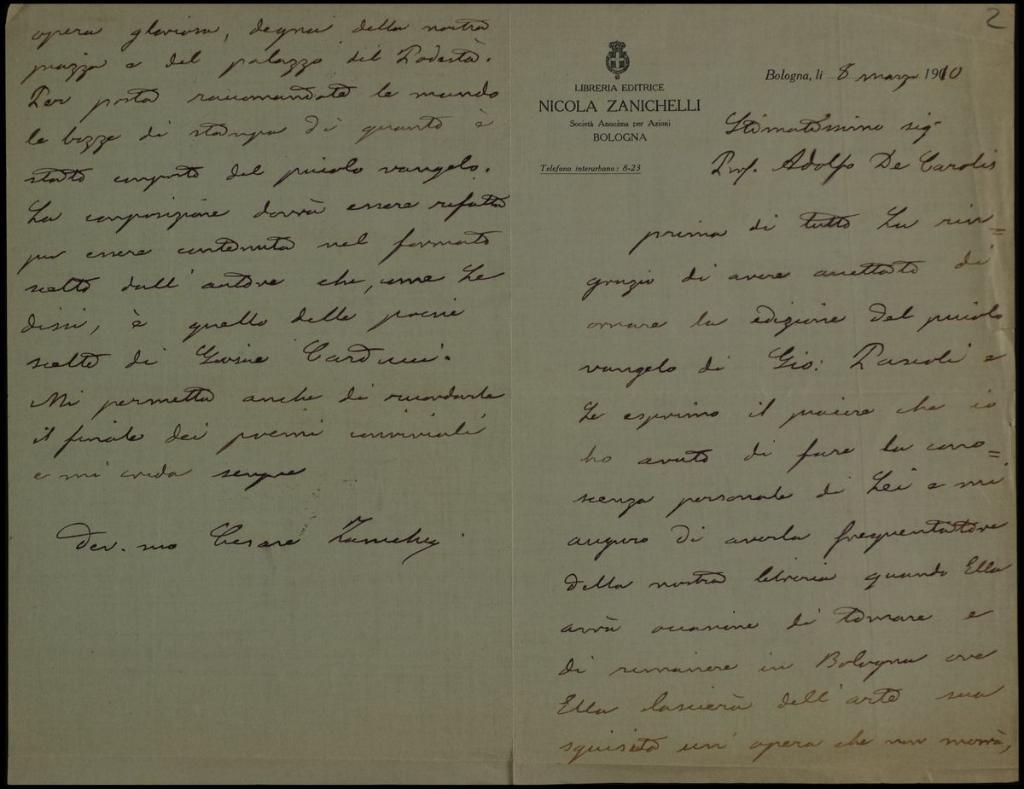 2
LIBRERIA EDITRICE
NICOLA ZANICHELLI
Società Anonima per Azioni
BOLOGNA
Telefono interurbano: 8-23
Bologna, li 8 marzo 1910
Stimatissimo sig.
Prof. Adolfo De Carolis
prima di tutto La rin=
grazio di avere accettato di
ornare la edizione del piccolo
vangelo di Gio: Pascoli e
Le esprimo il piacere che io
ho avuto di fare la cono=
scenza personale di Lei e mi
auguro di averla frequentatore
della nostra libreria quando Ella
avrà occasione di tornare e
di rimanere in Bologna ove
Ella lascierà dell'arte sua
squisita un'opera che non morrà,
opera gloriosa, degna della nostra
piazza e del palazzo del Podestà.
Per posta raccomandata le mando
le bozze di stampa di quanto è
stato composto del piccolo vangelo.
La composizione dovrà essere rifatta
per essere contenuta nel formato
scelto dall'autore che, come Le
dissi, è quello delle poesie
scelte di Giosue Carducci.
Mi permetta anche di ricordarle
il finale dei poemi conviviali
e mi creda sempre
dev.mo Cesare Zanichelli